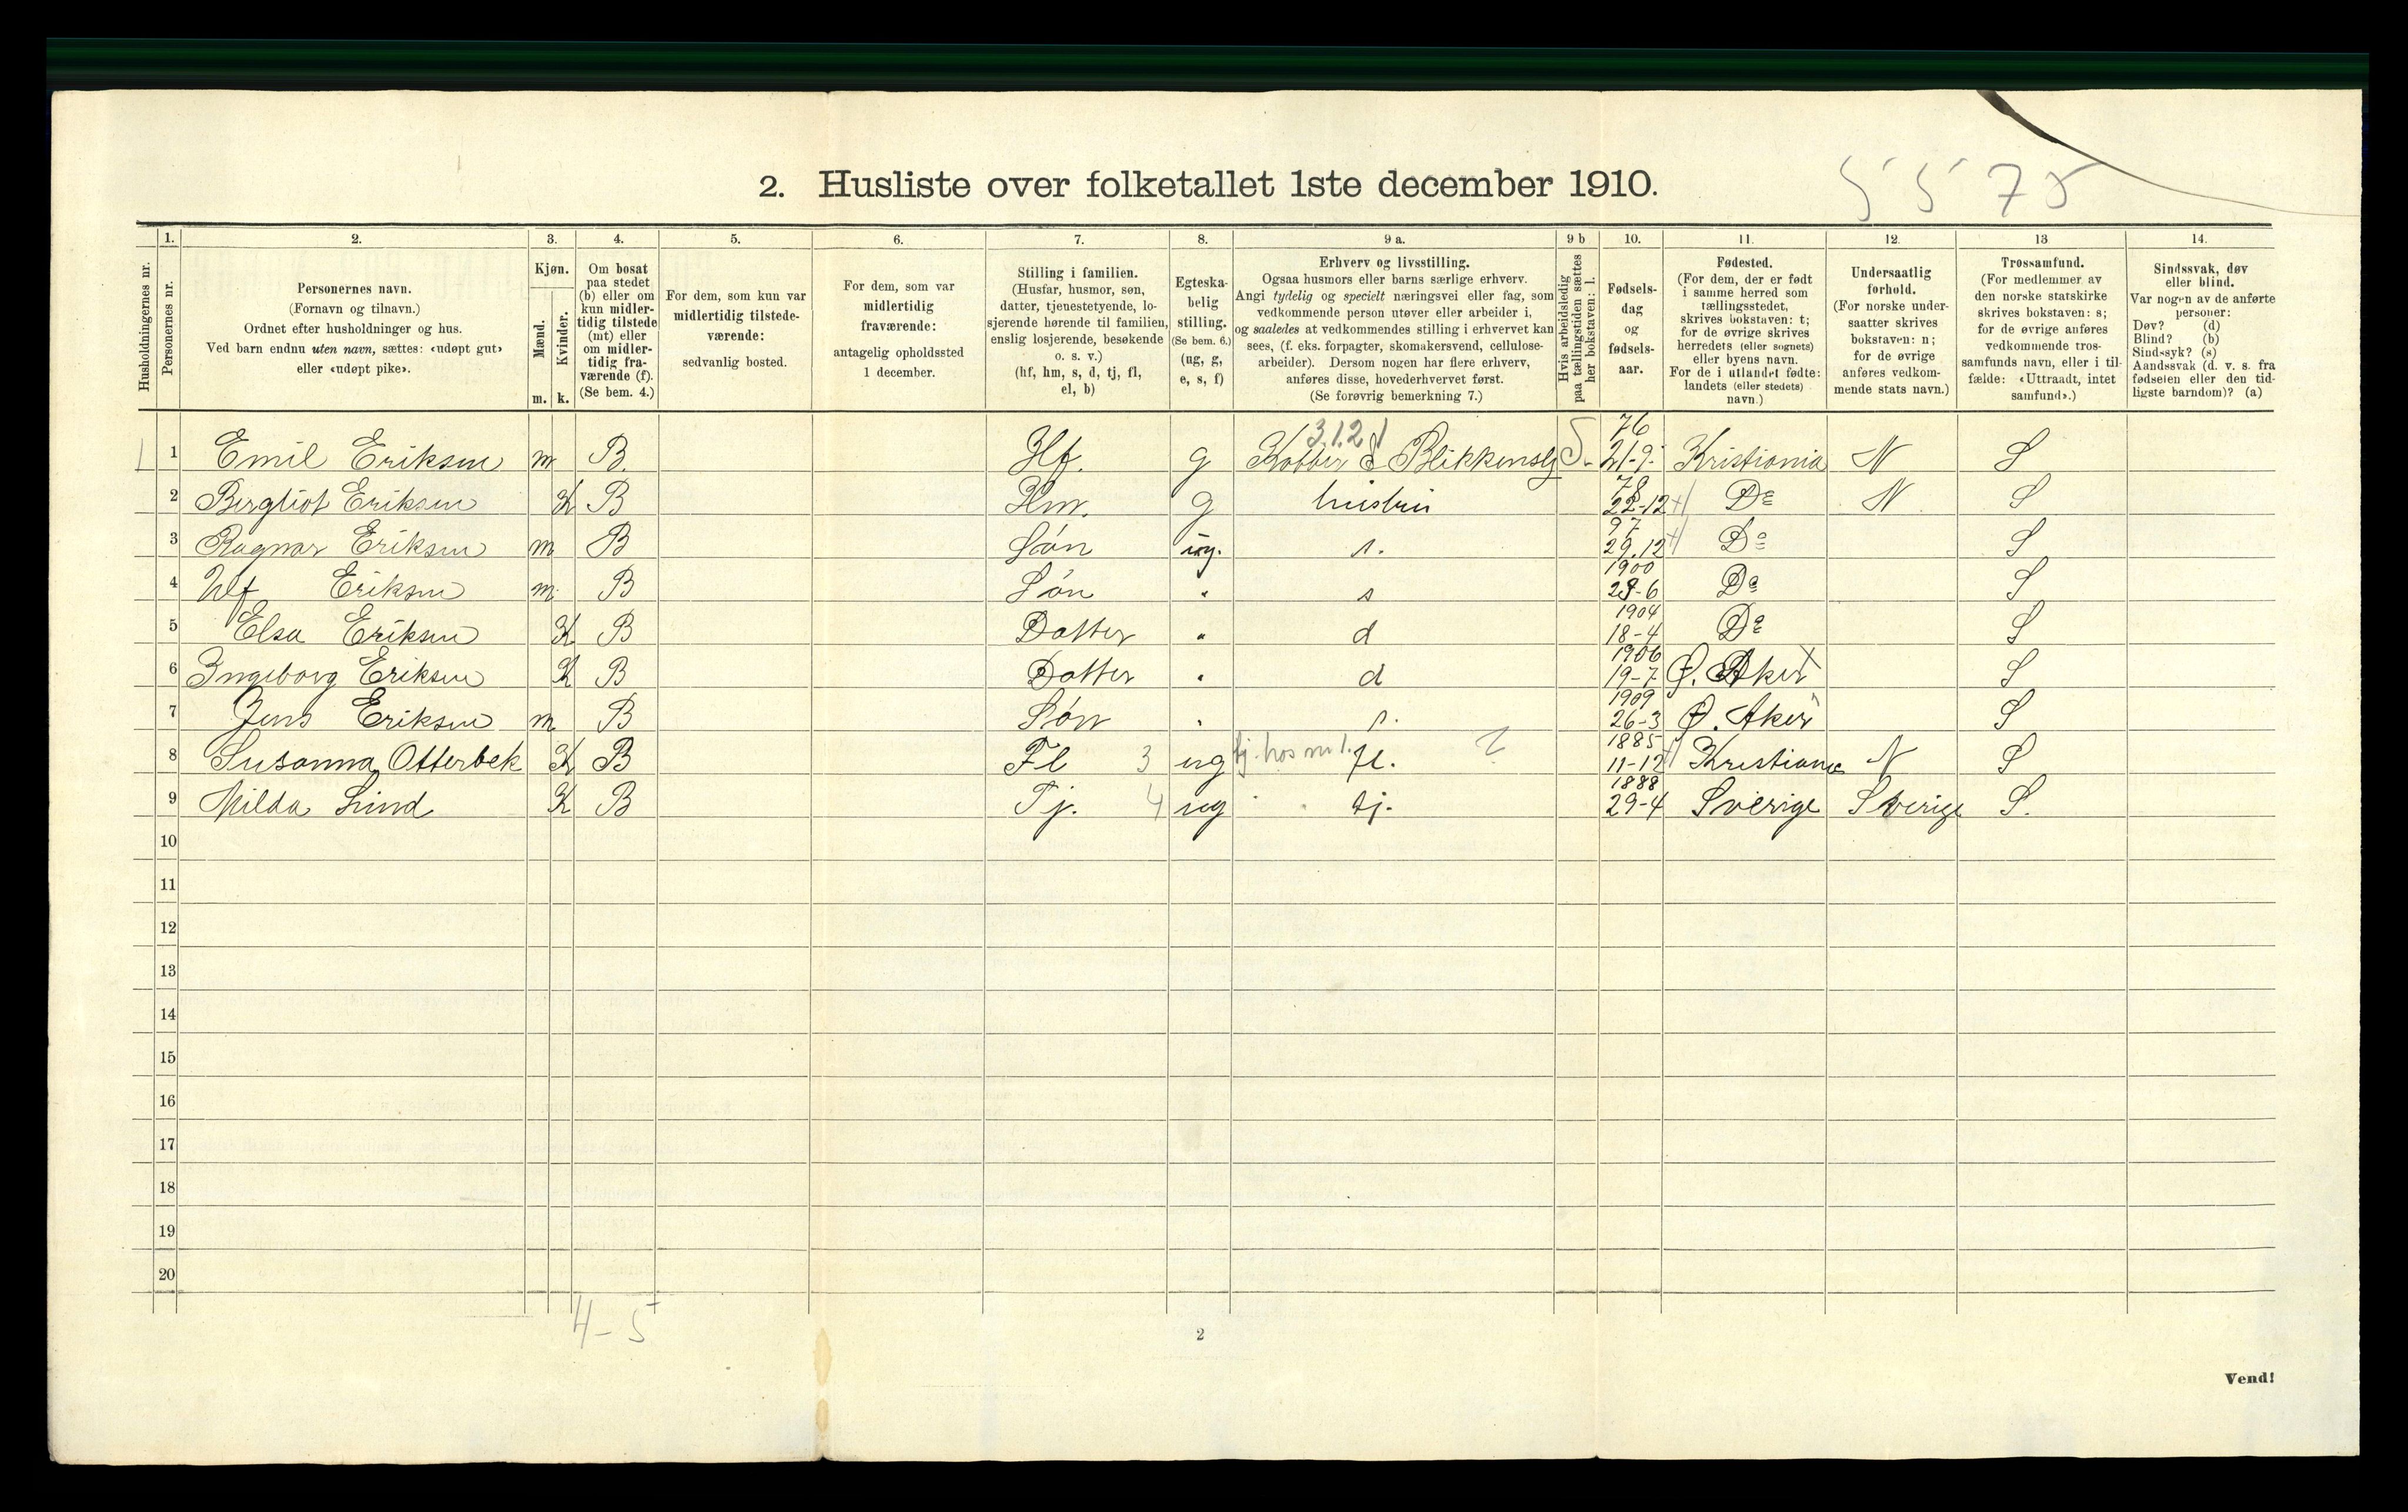 5570
2. Husliste over folketallet 1ste december 1910.
Husholdningernes nr.
1. Personernes nr.
2. Personernes navn.
(Fornavn og tilnavn.)
Ordnet efter husholdninger og hus.
Ved barn endnu uten navn, sættes: «udøpt gut»
eller «udøpt pike».
3. Kjøn.
Mænd. m.
Kvinder. k.
4. Om bosat
paa stedet
(b) eller om
kun midler-
tidig tilstede
(mt) eller
om midler-
tidig fra-
værende (f).
(Se bem. 4.)
5. For dem, som kun var
midlertidig tilstede-
værende:
sedvanlig bosted.
6. For dem, som var
midlertidig
fraværende:
antagelig opholdssted
1 december.
7. Stilling i familien.
(Husfar, husmor, søn,
datter, tjenestetyende, lo-
sjerende hørende til familien,
enslig losjerende, besøkende
o. s. v.)
(hf, hm, s, d, tj, fl,
el, b)
8. Egteska-
belig
stilling.
(Se bem. 6.)
(ug, g,
e, s, f)
9 a. Erhverv og livsstilling.
Ogsaa husmors eller barns særlige erhverv.
Angi tydelig og specielt næringsvei eller fag, som
vedkommende person utøver eller arbeider i,
og saaledes at vedkommendes stilling i erhvervet kan
sees, (f. eks. forpagter, skomakersvend, cellulose-
arbeider). Dersom nogen har flere erhverv,
anføres disse, hovederhvervet først.
(Se forøvrig bemerkning 7.)
9 b Hvis arbeidsledig
paa tællingstiden sættes
her bokstaven: l.
10. Fødsels-
dag
og
fødsels-
aar.
11. Fødested.
(For dem, der er født
i samme herred som
tællingsstedet,
skrives bokstaven: t;
for de øvrige skrives
herredets (eller sognets)
eller byens navn.
For de i utlandet fødte:
landets (eller stedets)
navn.)
12. Undersaatlig
forhold.
(For norske under-
saatter skrives
bokstaven: n;
for de øvrige
anføres vedkom-
mende stats navn.)
13 Trossamfund.
(For medlemmer av
den norske statskirke
skrives bokstaven: s;
for de øvrige anføres
vedkommende tros-
samfunds navn, eller i til-
fælde: «Uttraadt, intet
samfund».)
14. Sindssvak, døv
eller blind.
Var nogen av de anførte
personer:
Døv? (d)
Blind? (b)
Sindssyk? (s)
Aandssvak (d. v. s. fra
fødselen eller den tid-
ligste barndom)? (a)
3.1.2 76
1 1 Emil Eriksen m B. Hf. g Kobber & Blikkensl S. 21-9. Kristiania N S
78
2 Bergliot Eriksen K B Hm. g hustru 22-12 Do N S
97
3 Ragnar Eriksen m B Søn ug. s. 29.12 Do S
1900
4 Ulf Eriksen m B Søn " s 28-6 Do S
1904
5 Elsa Eriksen K B Datter " d 18-4 Do S
1906
6 Ingeborg Eriksen K B Datter " d 19-7 Ø. Aker S
1909
7 Jens Eriksen m B Søn " s. 26-3 Ø. Aker S
1885
8 Susanna Otterbek K B Fl 3 ug tj. hos nr 1. fl. 11-12 Kristiania N S
1888
9 Milda Lind K B Tj. 4 ug tj. 29-4 Sverige Sverige S.
10
11
12
13
14
15
16
17
18
19
20
4-5
2
Vend!